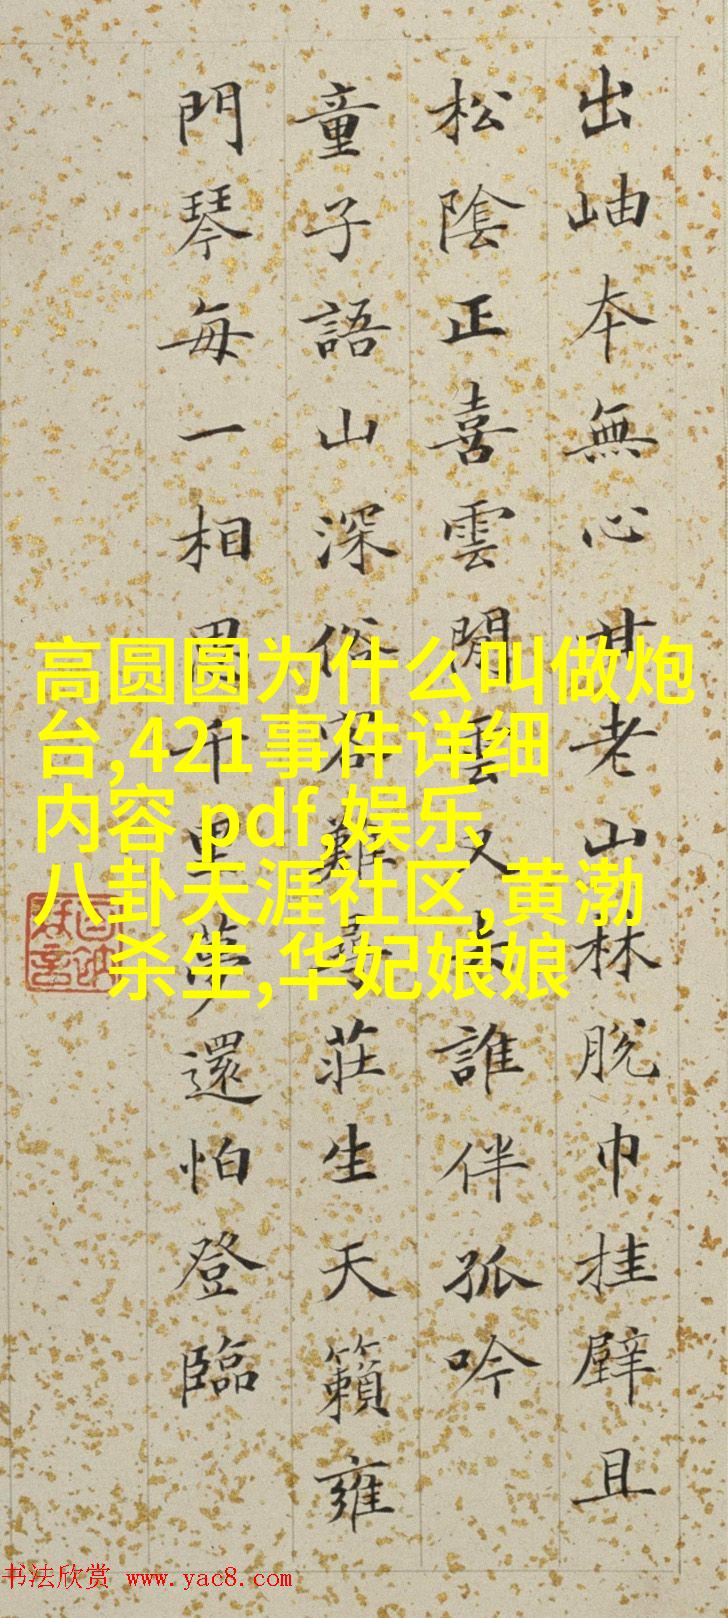 出岫本無心甘老山林脫巾挂壁且
松陰正喜雲閒雲又去誰伴孤吟
童子語山深俗客難尋莊生天籟雍
門琴每一相思千里夢還怕登臨
高圆圆为什么叫做炮
台,421事件详细
内容 pdf,娱乐
八卦天涯社区,黄渤
杀生,华妃娘娘
书法欣赏 www.yac8.com